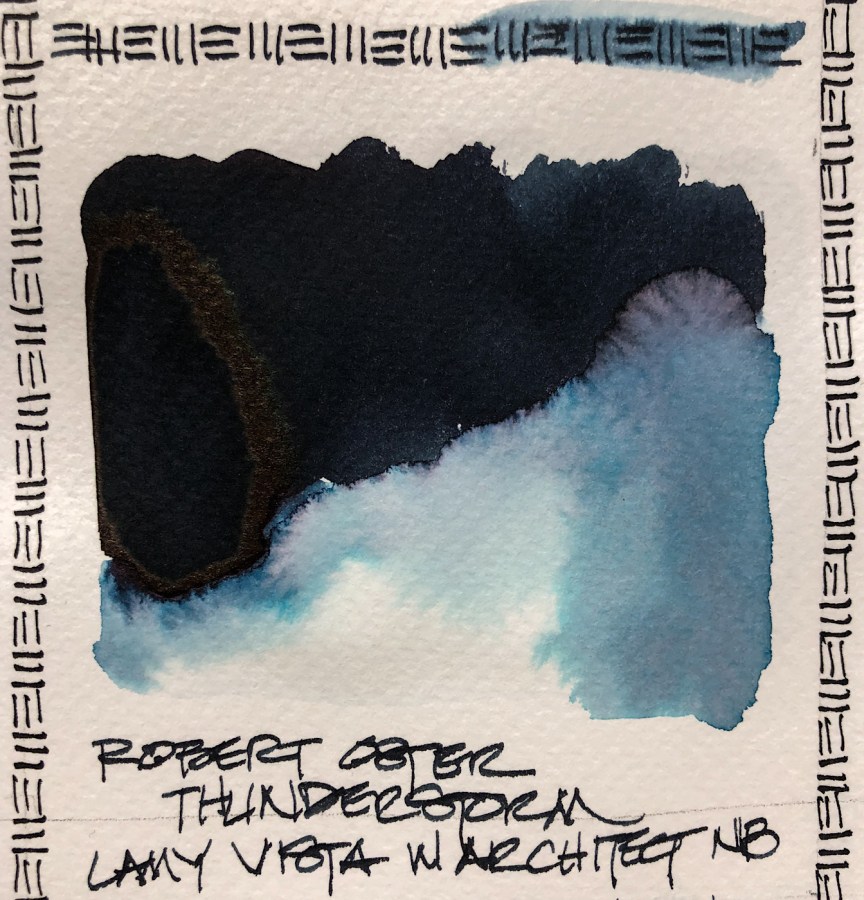 ROBERT OSTER
THUNDERSTORM
LAMY VISTA W ARCHITECT NIB